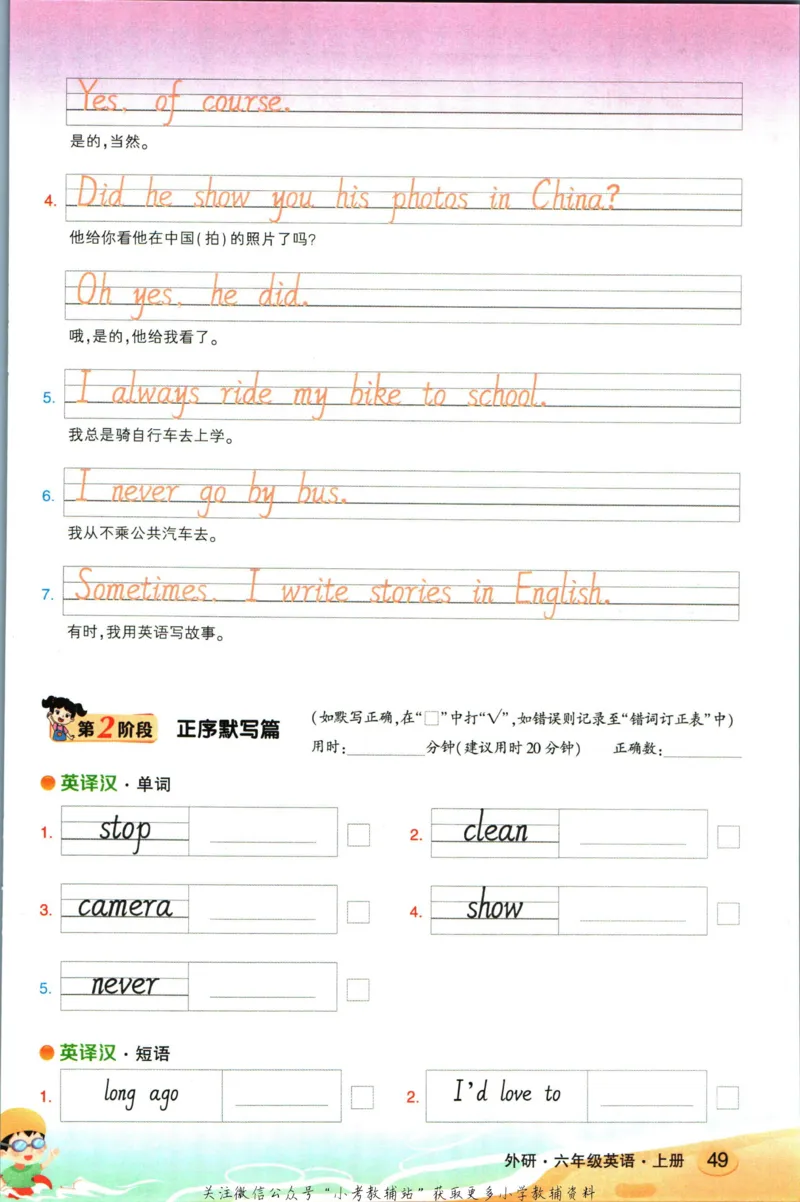 Yes, of course.
是的,当然。
4. Did he show you his photos in China?
他给你看他在中国(拍)的照片了吗?
Oh yes, he did.
哦,是的,他给我看了。
5. I always ride my bike to school.
我总是骑自行车去上学。
6. I never go by bus.
我从不乘公共汽车去。
7. Sometimes, I write stories in English.
有时,我用英语写故事。
第2阶段 正序默写篇 (如默写正确,在“□”中打“√”,如错误则记录至“错词订正表”中)
用时: 分钟(建议用时20分钟) 正确数:
英译汉·单词
1. stop 2. clean
3. camera 4. show
5. never
英译汉·短语
1. long ago 2. I'd love to
外研·六年级英语·上册 49
关注微信公众号“小考教辅站”获取更多小学教辅资料